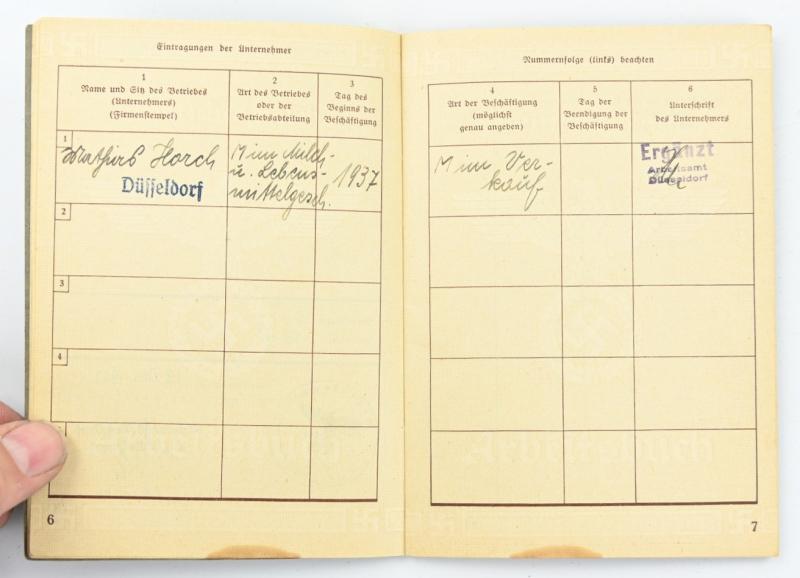 Eintragungen der Unternehmer
1
Name und Sitz des Betriebes
(Unternehmers)
(Firmenstempel)
2
Art des Betriebes
oder der
Betriebsabteilung
3
Tag des
Beginns der
Beschäftigung
1
Mathias Horch
Düsseldorf
M im Milch-
u. Lebens-
mittelgesch.
1937
2
3
4
Arbeitsbuch
6
Nummernfolge (links) beachten
4
Art der Beschäftigung
(möglichst
genau angeben)
5
Tag der
Beendigung der
Beschäftigung
6
Unterschrift
des Unternehmers
M im Ver-
kauf
Ergänzt
Arbeitsamt
Düsseldorf
Arbeitsbuch
7